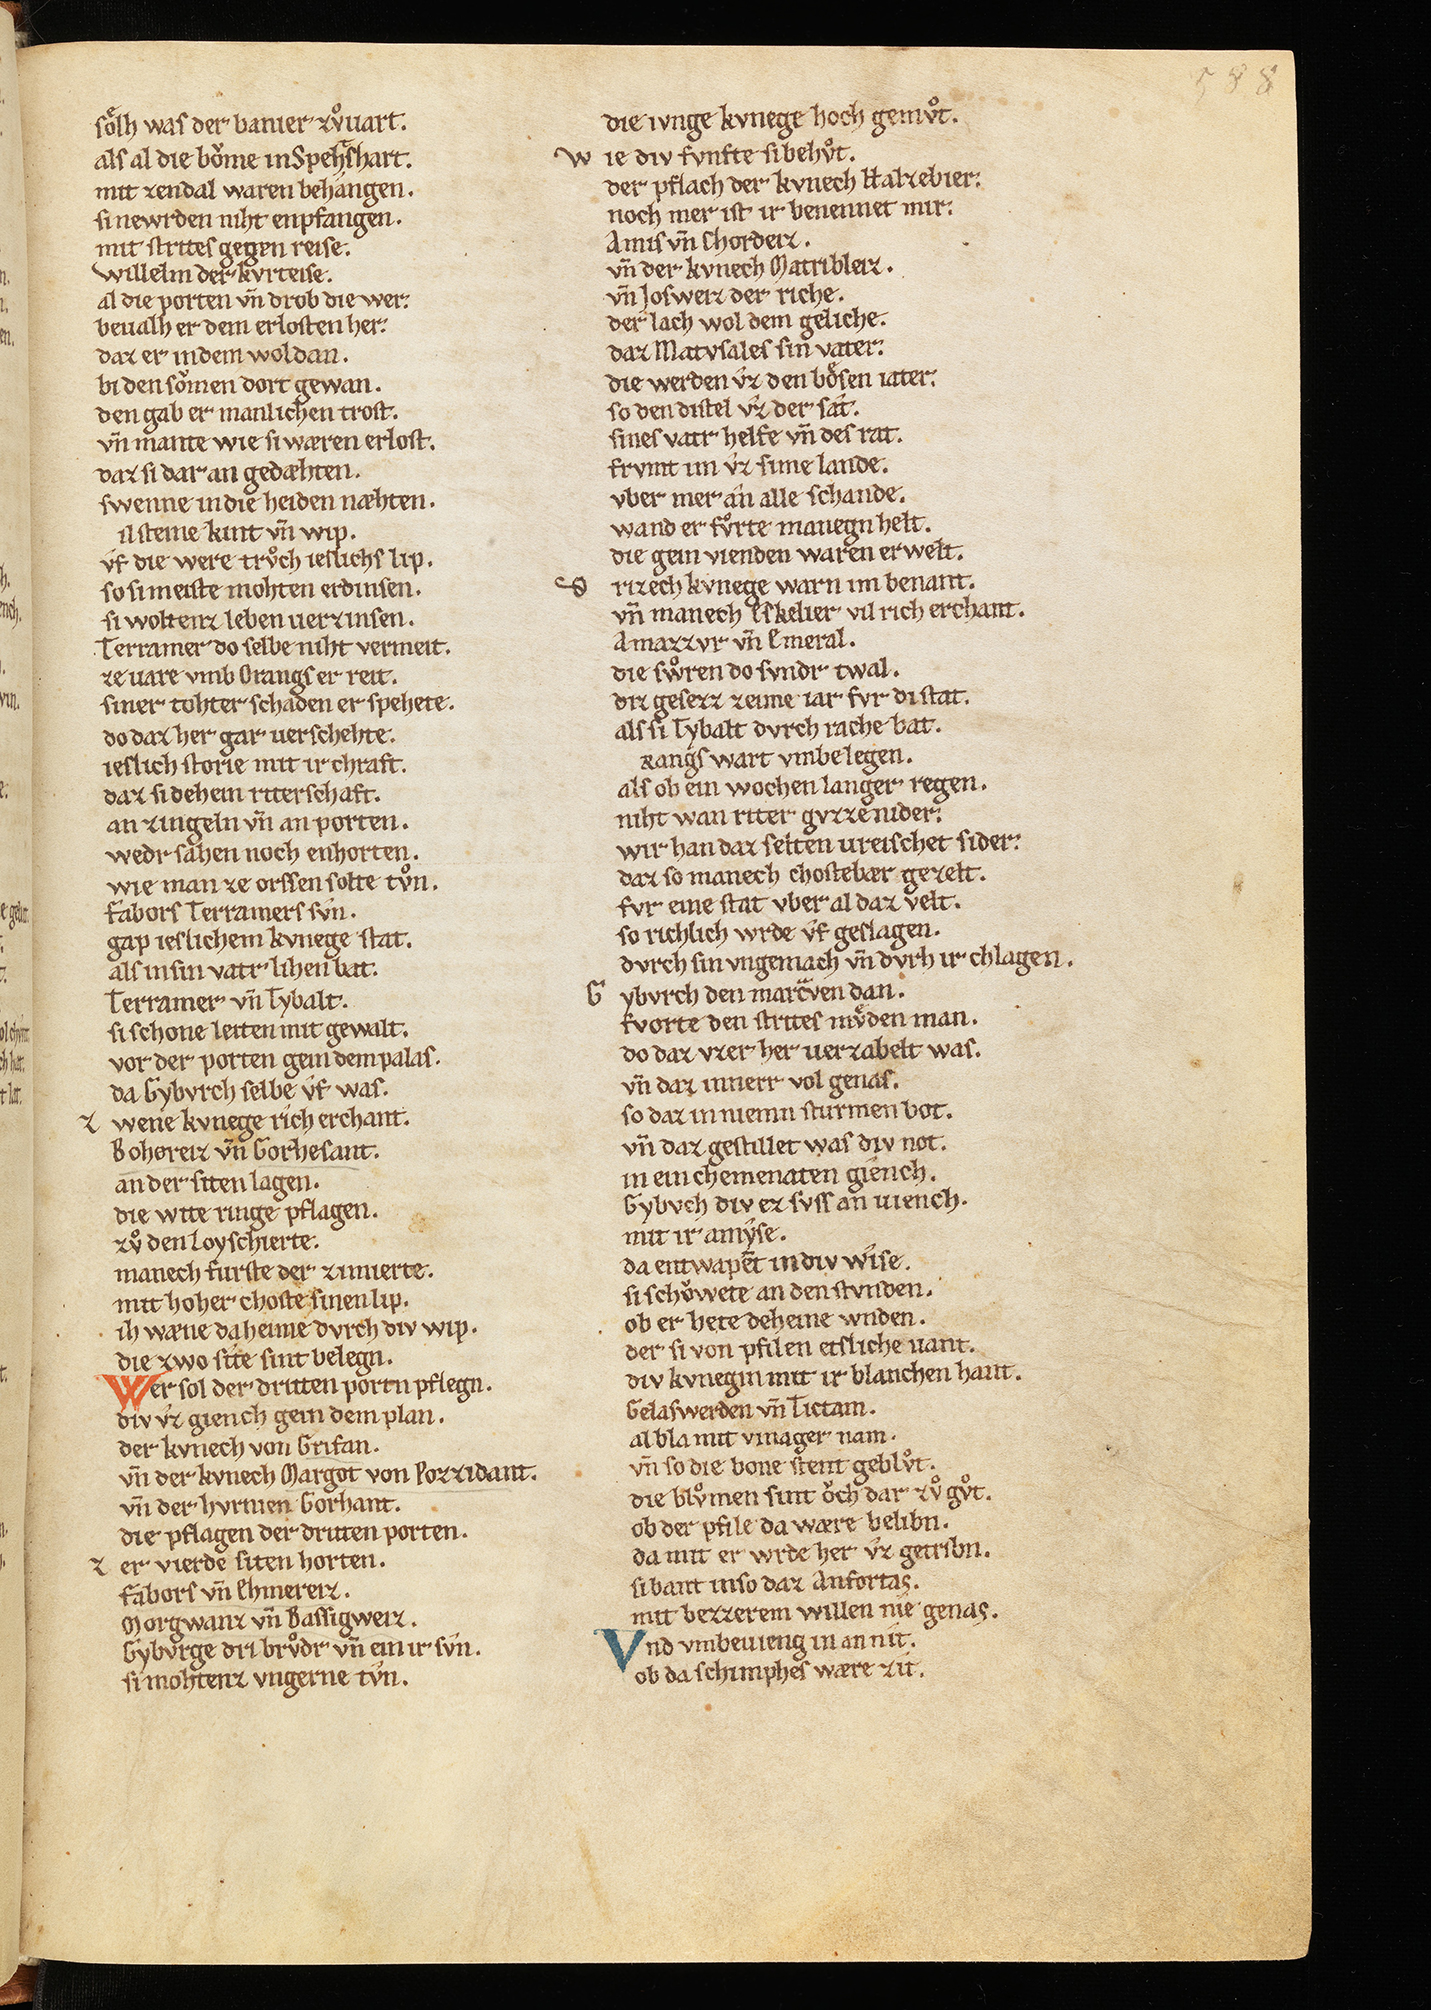 588
sölh was der banier zvͦuart.
als al die boͮme in Spehshart.
mit zendal waren behangen.
si newrden niht enpfangen.
mit strites gegen reise.
Willelm der kvrteise.
al die porten vn̄ drob die wer.
beualh er dem erlosten her.
daz er in dem woldan.
bi den soͮmen dort gewan.
den gab er manlichen trost.
vn̄ mante wie si wæren erlost.
daz si dar an gedæhten.
swenne in die heiden næhten.
steine kint vn̄ wip.
vf die were trvͦch ieslichs lip.
so si meiste mohten erdinsen.
si woltenz leben uerzinsen.
Terramer do selbe niht vermeit.
ze uare vmb Orangs er reit.
siner tohter schaden er spehete.
do daz her gar uerschehte.
ieslich storie mit ir chraft.
daz si dehein riterschaft.
an zingeln vn̄ an porten.
wedr sahen noch enhorten.
wie man ze orssen solte tvͦn.
Fabors Terramers svn.
gap ieslichem kvnege stat.
als in sin vatr lihen bat.
Terramer vn̄ Tybalt.
si schone leiten mit gewalt.
vor der porten gein dem palas.
da Gybvrch selbe vf was.
z wene kvnege rich erchant.
Bohereiz vn̄ Gorhesant.
an der siten lagen.
die wite ringe pflagen.
zvͦ den Loyschierte.
manech furste der zimierte.
mit hoher choste sinen lip.
ih wæne da heime dvrch div wip.
die zwo site sint belegn.
Wer sol der dritten portn pflegn.
div vz giench gein dem plan.
der kvnech von Grifan.
vn̄ der kvnech Margot von Pozzidant.
vn̄ der hvrnen Gorhant.
die pflagen der dritten porten.
z er vierde siten horten.
Fabors vn̄ Ehmereiz.
Morgwanz vn̄ Bassigweiz.
Gybvrge dri brvͦdr vn̄ ein ir svn.
si mohtenz vngerne tvn.
die ivnge kvnege hoch gemvͦt.
w ie div fvnfte si behvͦt.
der pflach der kvnech Halzebier.
noch mer ist ir benennet mir.
Amis vn̄ Chordeiz.
vn̄ der kvnech Matribleiz.
vn̄ Josweiz der riche.
der lach wol dem geliche.
daz Matvsales sin vater.
die werden vz den bösen iater.
so den distel vz der sat.
sines vatr helfe vn̄ des rat.
frvmt im vz sime lande.
vber mer an alle schande.
wand er fvͦrte manegn helt.
die gein vienden waren erwelt.
d rizech kvnege warn im benant.
vn̄ manech Eskelier vil rich erchant.
Amazzvr vn̄ Emeral.
die swͦren do svndr twal.
diz gesezz zeime iar fvr di stat.
als si Tybalt dvrch rache bat.
rangs wart vmbelegen.
als ob ein wochen langer regen.
niht wan riter gvzze nider.
wir han daz selten ureischet sider.
daz so manech chostebær gezelt.
fvr eine stat vber al daz velt.
so richlich wrde vf geslagen.
dvrch sin vngemach vn̄ dvrh ir chlagen.
G ybvrch den marcͣven dan.
fvorte den strites mvͤden man.
do daz vzer her uerzabelt was.
vn̄ daz innerr vol genas.
so daz in niemn sturmen bot.
vn̄ daz gestillet was div not.
in ein chemenaten giench.
Gybvch div ez svss an uiench.
mit ir amyse.
da entwapēt in div wise.
si schoͮwete an den stvnden.
ob er hete deheine wnden.
der si von pfilen etsliche uant.
div kvnegin mit ir blanchen hant.
Gelaswerden vn̄ Tictam.
al bla mit vinager nam.
vn̄ so die bone stent geblvͦt.
die blvͦmen sint oͮch dar zvͦ gvͦt.
ob der pfile da wære belibn.
da mit er wrde her vz getribn.
si bant in so daz Anfortas.
mit bezzerem willen nie genas.
Vnd vmbeuieng in an nit.
ob da schimphes wære zit.